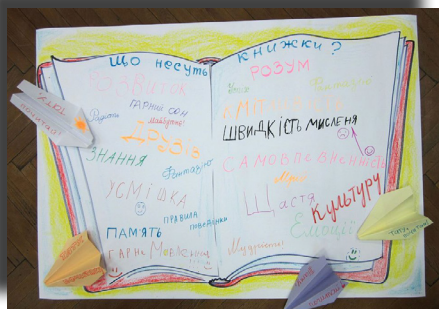 ЩО НЕСУТЬ КНИЖКИ?
РОЗВИТОК
ГАРНИЙ СОН
Радість
майбутнє!
ДОСВІД
ЗНАННЯ
Фантазію
УСМІШКА
ПРАВИЛА
ПОВЕДІНКИ
ПАМ'ЯТЬ
ГАРНЕ МОВЛЕННЯ
РОЗУМ
КМІТЛИВІСТЬ
ШВИДКІСТЬ МИСЛЕНЯ
САМОВПЕВНЕНІСТЬ
Мрії
Щастя
КУЛЬТУРУ
Емоції
Мудрість!